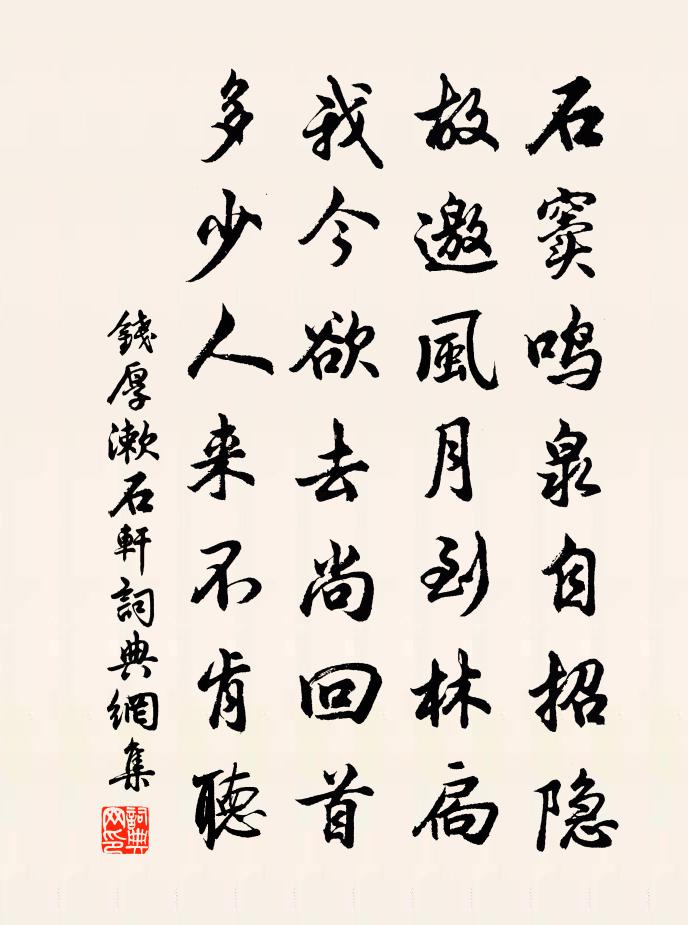 石竇鳴泉自招隐
故邀風月到林扃
我今欲去尚回首
多少人来不肯聽
錢厚漱石軒詞典網集
詞典网印